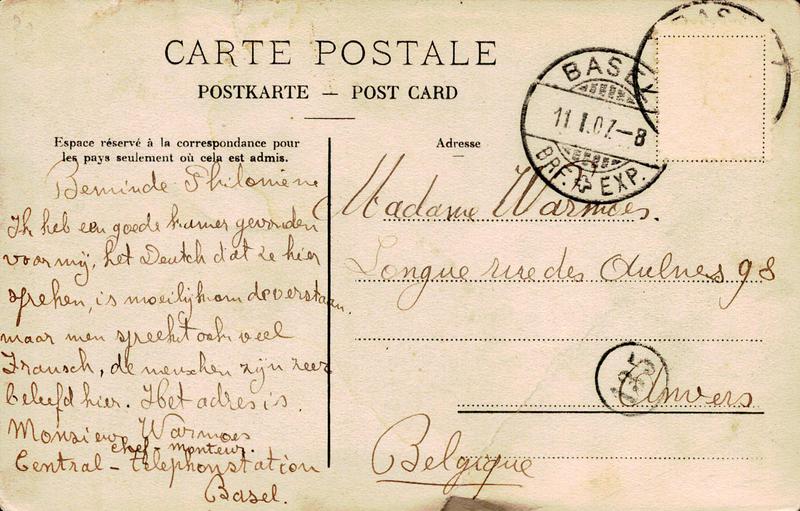 CARTE POSTALE
POSTKARTE — POST CARD
BASEL
11.I.07.–8
BRF. EXP.
Espace réservé à la correspondance pour
les pays seulement où cela est admis.
Adresse
Beminde Philomène
Ik heb een goede kamer gevonden
voor mij, het Deutch dat ze hier
spreken, is moeilijk om de verstaan.
maar men spreekt ook veel
Fransch, de menschen zijn zeer
beleefd hier. Het adres is.
Monsieur Warmoes
chef-monteur.
Central-telephonstation
Basel.
Madame Warmoes.
Longue rue des Aulnes 98
Anvers
Belgique